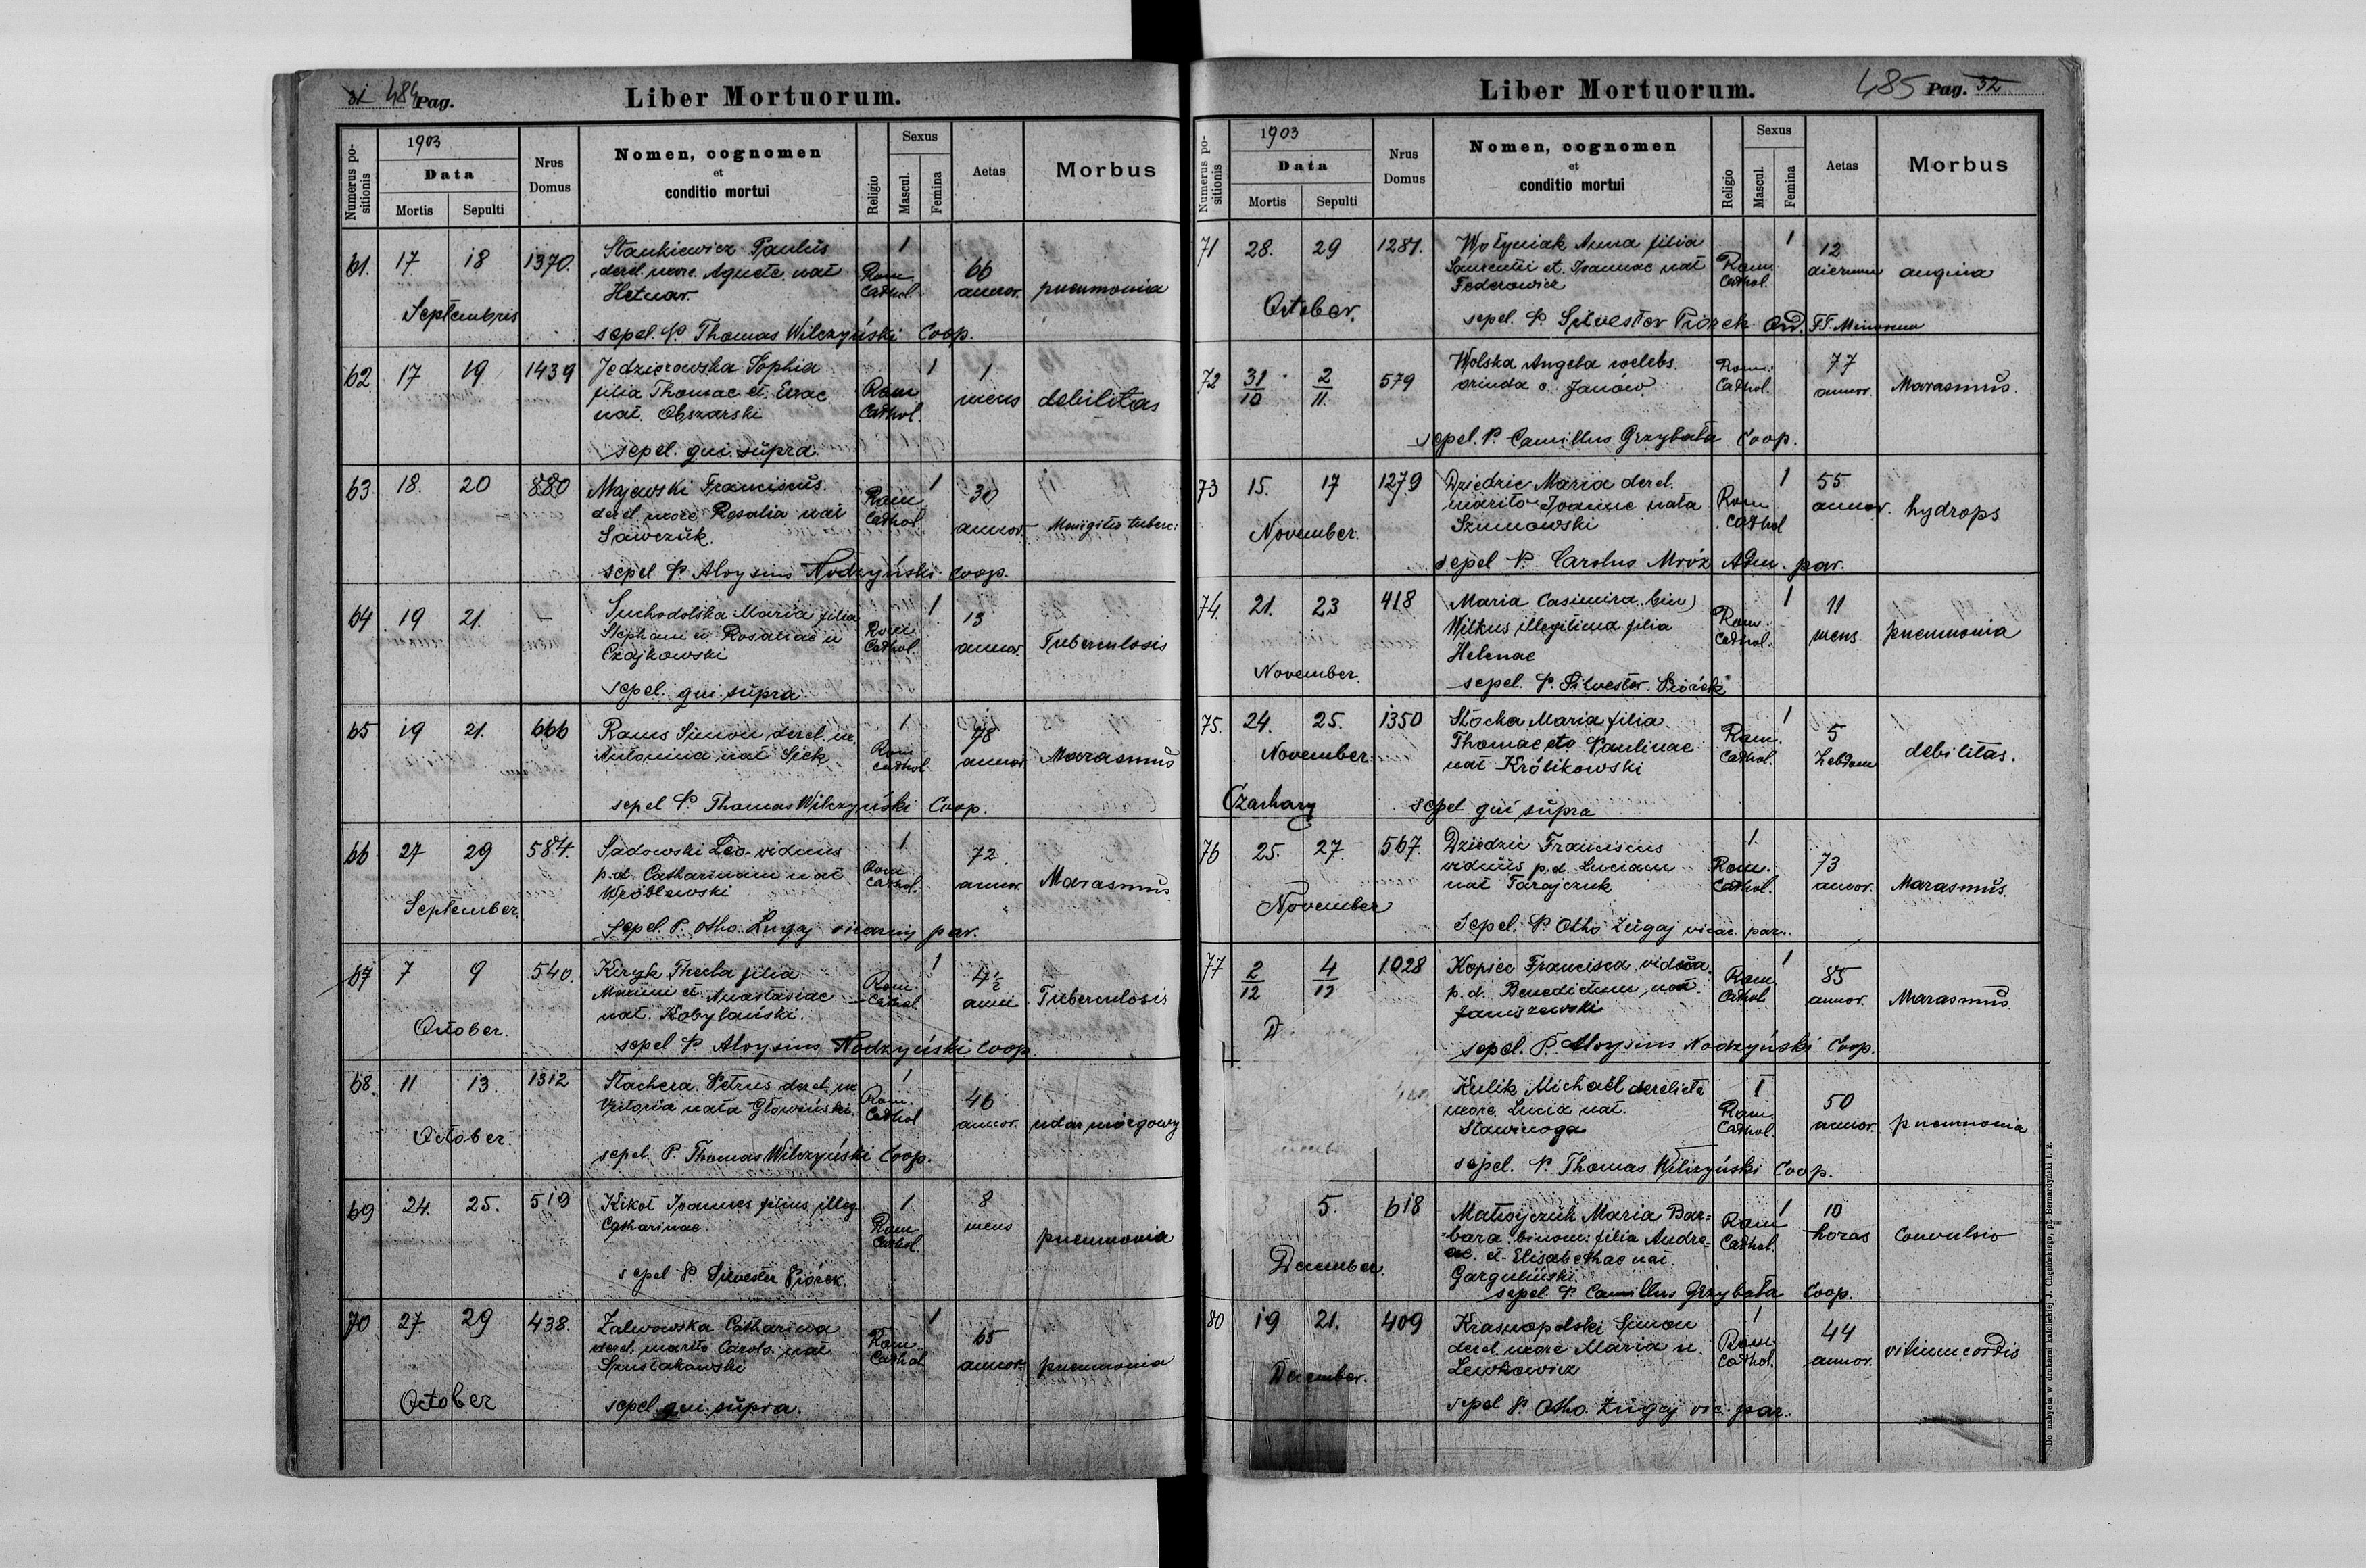 31 484 Pag. Liber Mortuorum.
Numerus positionis
1903
Data
Mortis Sepulti
Nrus Domus
Nomen, cognomen
et
conditio mortui
Religio
Sexus
Mascul. Femina
Aetas
Morbus
61. 17 18 1370. Stankiewicz Paulus 1
derel. uxore Agneta nat Rom. 66
Hetnar. Cathol. annor. pneumonia
Septembris
sepel. P. Thomas Wilczyński Coop.
62 17 19 1439 Jedziorowska Sophia 1 1
filia Thomae et Evae Rom mens debilitas
nat. Obszarski Cathol.
sepel. qui supra.
63 18. 20 880 Majewski Franciscus 1 30
derel. uxore Rosalia nat Rom Cathol. annor. Menigitis tuberc:
Sawczuk.
sepel P. Aloysius Nodzyński Coop.
64 19 21. – Suchodolska Maria filia 1 13
Stephani et Rosaliae n Rom Cathol. annor. Tuberculosis
Czajkowski
sepel. qui supra.
65 19 21. 666 Raus Simon derel. ux. 1 78
Antonina nat Siek Rom Cathol annor. Marasmus
sepel P. Thomas Wilczyński Coop.
66 27 29 584. Sadowski Leo viduus 1 72
p.d. Catharinam nat Rom Cathol. annor. Marasmus
Wróblewski
September.
Sepel. P. Otho Zugaj par.
67 7 9 540. Kiryk Thecla filia 1 4½
Maximi et Anastasiae Rom. Cathol anni Tuberculosis
nat. Kobylański.
October.
sepel P. Aloysius Nodzyński Coop
68. 11 13. 1312 Stachera Petrus derel. ux 1 46
Victoria nata Głowiński. Rom. Cathol annor. udar mózgowy
October.
sepel. P. Thomas Wilczyński Coop.
69 24. 25. 519 Kikot Joannes filius illeg. 1 8
Catharinae. Rom Cathol. mens pneumonia
sepel P. Silvester Piórek.
70 27. 29 438. Zalwowska Catharina 1 65
derel. marito Carolo nat Rom. Cathol annor. pneumonia
Szustakowski
October
sepel qui supra.
Liber Mortuorum. 485 Pag. 32
Numerus positionis
1903
Data
Mortis Sepulti
Nrus Domus
Nomen, cognomen
et
conditio mortui
Religio
Sexus
Mascul. Femina
Aetas
Morbus
71 28. 29 1281. Wołyniak Anna filia 1 12
Laurentii et Joannae nat Rom Cathol. dierum angina
Federowicz
October.
sepel. P. Silvester Piórek Ord. FF. Minorum
72 31/10 2/11 579 Wolska Angela coelebs. Rom. Cathol. 77
oriunda e Janów. annor. Marasmus.
sepel. P. Camillus Grzybała Coop.
73 15. 17 1279 Dziedzic Maria derel. 1 55
marito Joanne nata Rom Cathol annor. hydrops
Szumowski
November.
sepel P. Carolus Mróz Adm. par.
74. 21. 23 418 Maria Casimira bin) 1 11
Wilkus illegitima filia Rom. Cathol. mens pneumonia
Helenae
November.
sepel. P. Silvester Piórek
75. 24. 25. 1350 Stocka Maria filia 1 5
Thomae et Paulinae Rom. Cathol. hebdom debilitas.
nat Królikowski
November.
Czachary sepel qui supra
76 25. 27. 567. Dziedzic Franciscus 1.
viduus p.d. Luciam Rom. Cathol. 73 annor. Marasmus.
nat Tarajczuk
November
Sepel. P. Otho Zugaj vicar. par.
77 2/12 4/12 1028 Kopiec Francisca vidua 1 85
p.d. Benedictum nat Rom Cathol. annor. Marasmus
Januszewski
D
sepel. P. Aloysius Nodzyński Coop.
Kulik Michaël derelicta 1 50
uxore Lucia nat. Rom. Cathol. annor. pneumonia
Stawinoga
sepel. P. Thomas Wilczyński Coop.
3 5. 618 Matwijczuk Maria Bar= 1 10
bara binom: filia Andre= Rom Cathol. horas convulsio
ae. et Elisabethae nat.
December. Gargulinski
sepel P. Camillus Grzybała Coop.
80 19 21. 409 Krasnopolski Simon 1 44
derel. uxore Maria n. Rom. Cathol. annor. vitium cordis
Lewkowicz
December.
sepel P. Otho Zugaj vic. par.
Do nabycia w drukarni katolickiej J. Chęcińskiego, pl. Bernardyński l. 2.